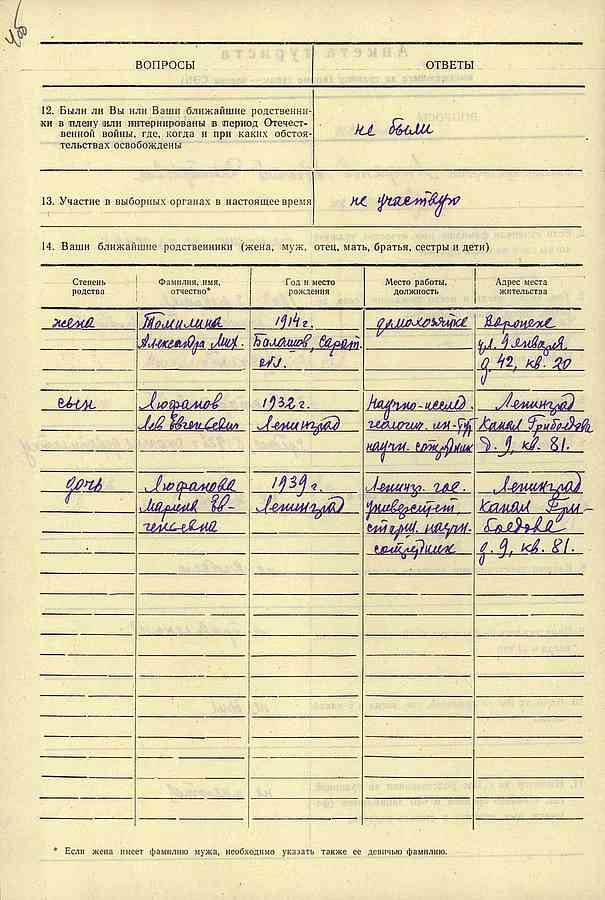 ВОПРОСЫ
ОТВЕТЫ
12. Были ли Вы или Ваши ближайшие родственни-
ки в плену или интернированы в период Отечест-
венной войны, где, когда и при каких обстоя-
тельствах освобождены
не были
13. Участие в выборных органах в настоящее время
не участвую
14. Ваши ближайшие родственники (жена, муж, отец, мать, братья, сестры и дети)
Степень
родства
Фамилия, имя,
отчество*
Год и место
рождения
Место работы,
должность
Адрес места
жительства
жена
Томилина
Александра Мих.
1914 г.
Балашов, Сарат.
обл.
домохозяйка
Воронеж
ул. 9 января
д. 42, кв. 20
сын
Люфанов
Лев Евгеньевич
1932 г.
Ленинград
Научно-исслед.
геологич. ин-тут
научн. сотрудник
Ленинград
Канал Грибоедова
д. 9, кв. 81.
дочь
Люфанова
Марина Ев-
геньевна
1939 г.
Ленинград
Ленингр. гос.
университет,
старш. научн.
сотрудник
Ленинград
Канал Гри-
боедова
д. 9, кв. 81.
* Если жена имеет фамилию мужа, необходимо указать также ее девичью фамилию.